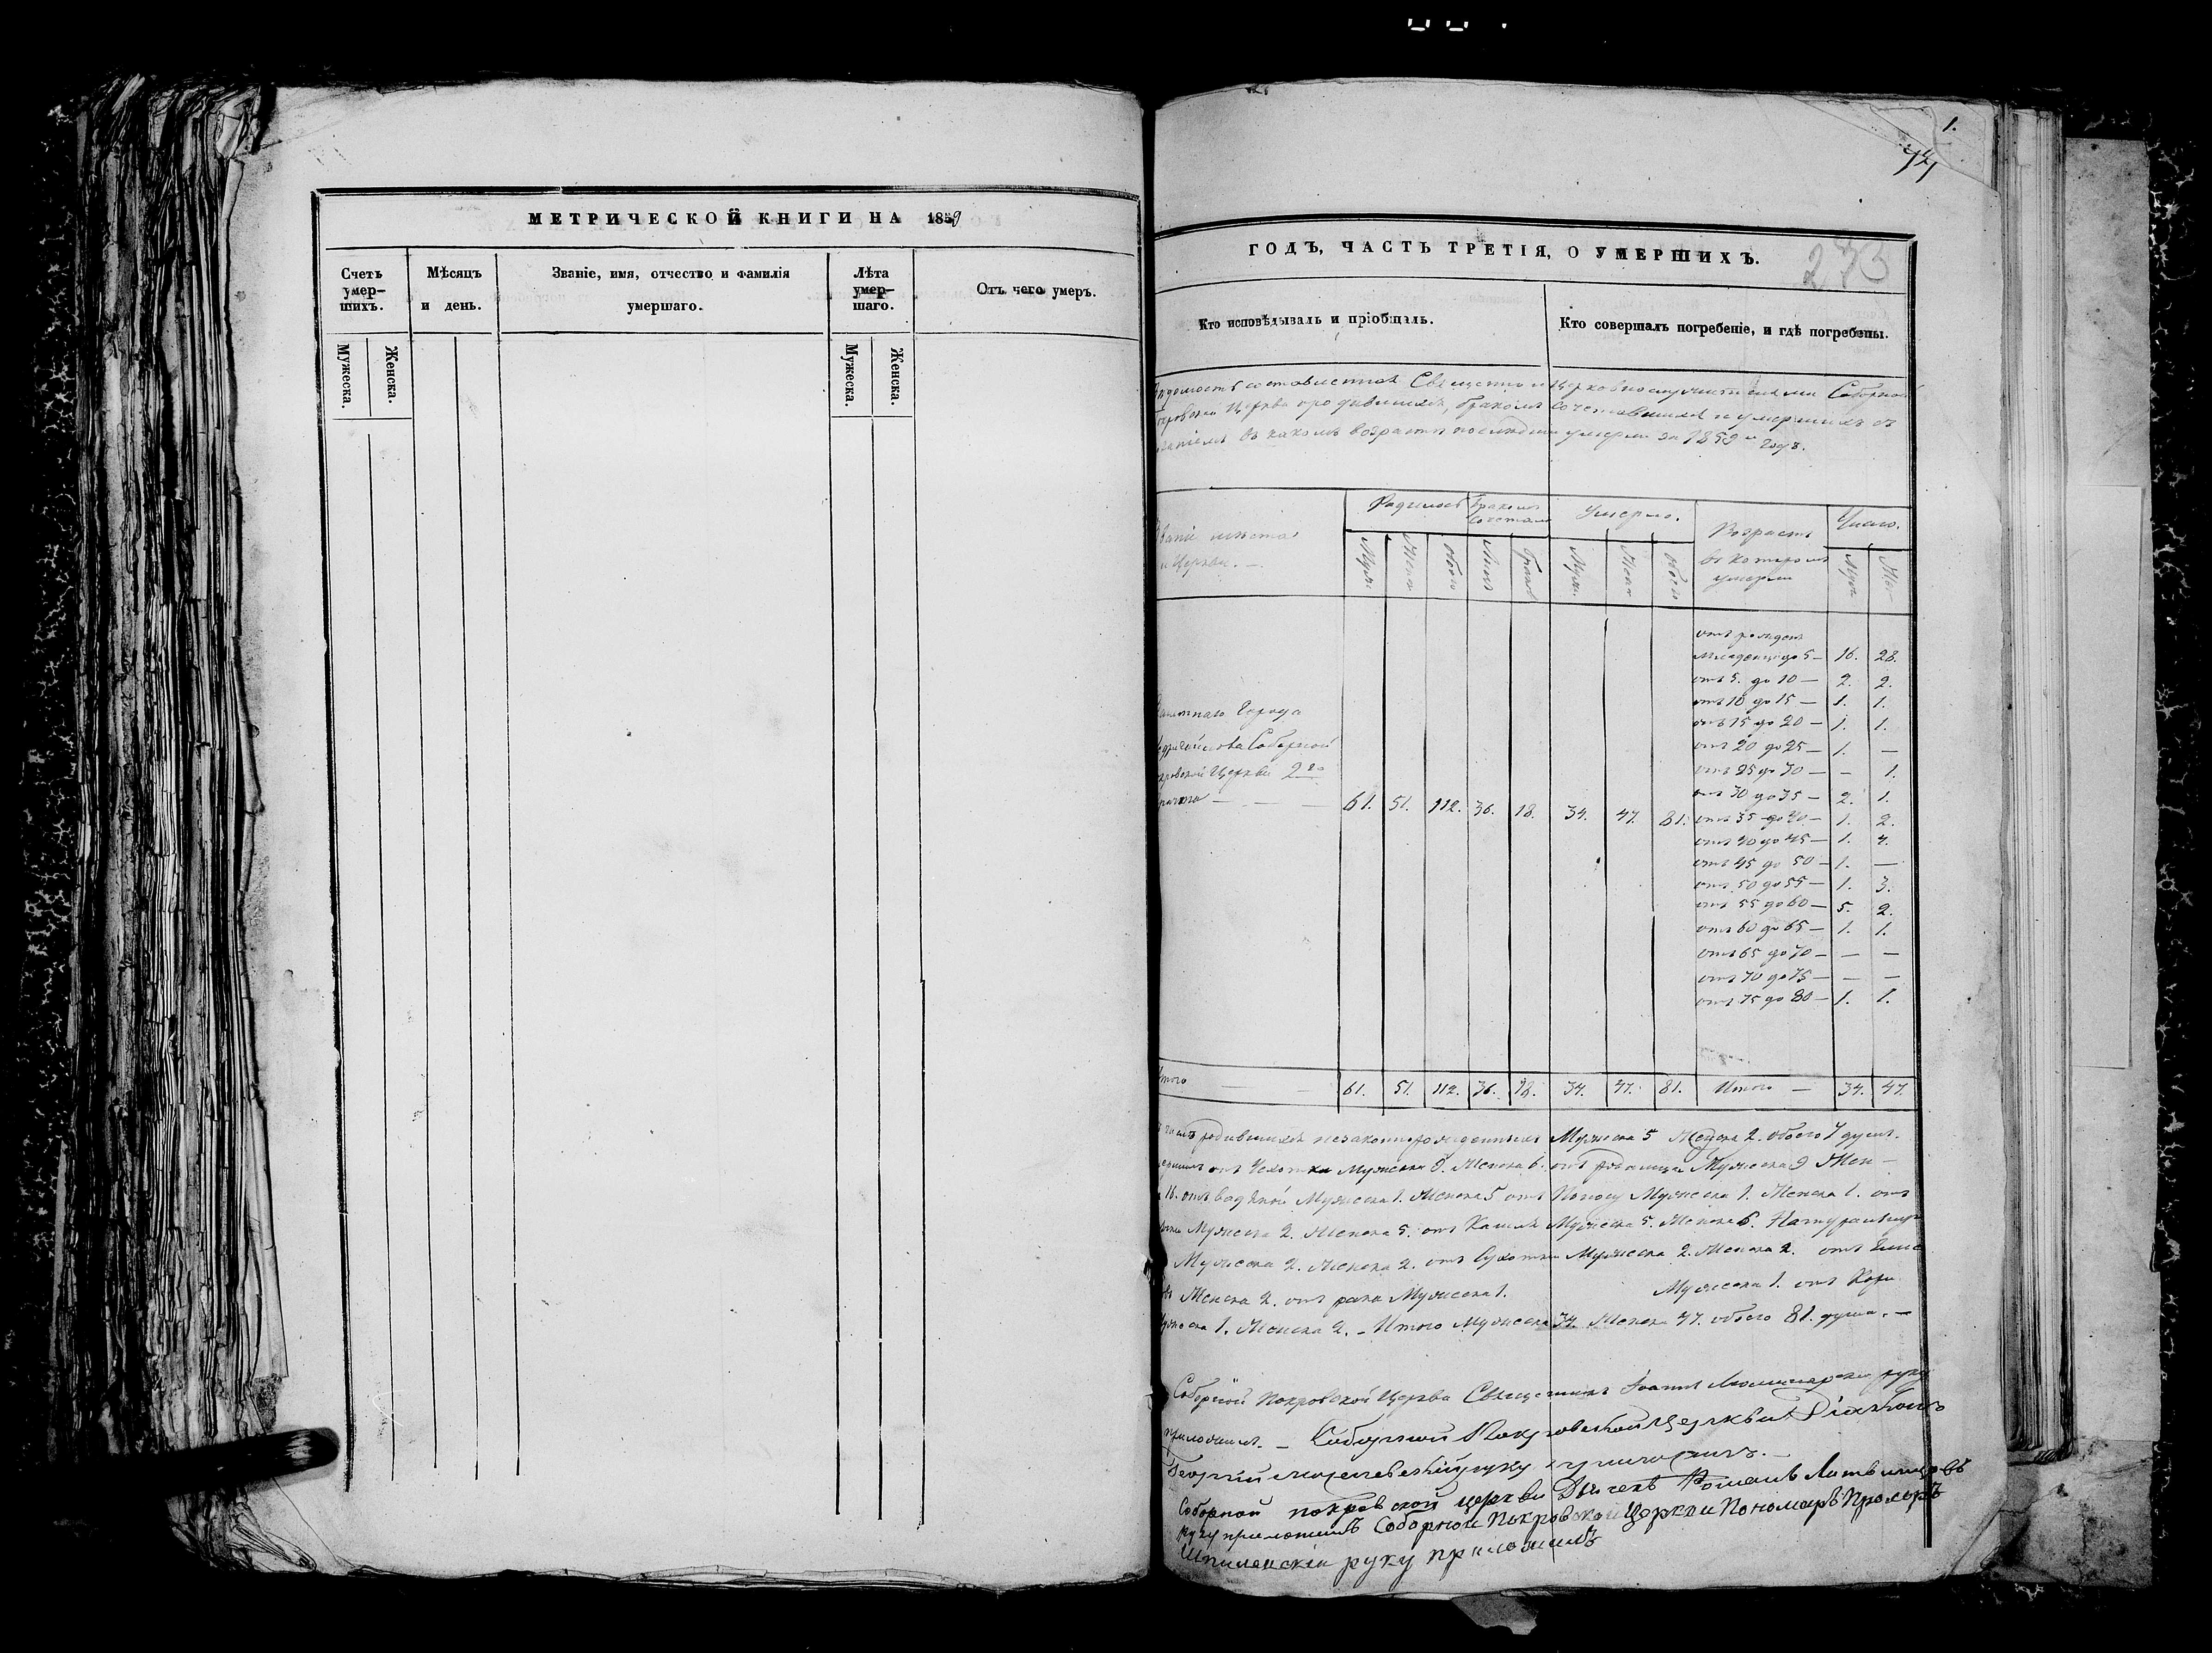 МЕТРИЧЕСКОЙ КНИГИ НА 1859
Счетъ умер-шихъ.
Мѣсяцъ и день.
Званіе, имя, отчество и фамилія умершаго.
Лѣта умер-шаго.
Отъ чего умеръ.
Мужеска.
Женска.
Мужеска.
Женска.
1.
ГОДЪ, ЧАСТЬ ТРЕТІЯ, О УМЕРШИХЪ.
273
Кто исповѣдывалъ и пріобщалъ.
Кто совершалъ погребеніе, и гдѣ погребены.
составленная Священно и церковнослужителями Соборной
Церкви о родившихся, бракомъ сочетавшихся и умершихъ съ
въ какомъ возрастѣ последніи умерли за 1859 й годъ.
Родилось
Бракомъ сочетано
Умерло.
Возрастъ въ которомъ умерли
Число.
званіе мѣста
и Церкви. —
Муж
Женс
обоего
Лицъ
Браковъ
Муж.
Женс
обоего
Муж
Жен
отъ рожден
младенцы до 5 — 16. 28.
отъ 5. до 10 — 2. 2.
отъ 10 до 15 — 1. 1.
отъ 15 до 20 — 1. 1.
отъ 20 до 25 — 1. —
отъ 25 до 30 — — 1.
отъ 30 до 35 — 2. 1.
отъ 35 до 40 — 1. 2.
отъ 40 до 45 — 1. 4.
отъ 45 до 50 — 1. —
отъ 50 до 55 — 1. 3.
отъ 55 до 60 — 5. 2.
отъ 60 до 65 — 1. 1.
отъ 65 до 70 — — —
отъ 70 до 75 — — —
отъ 75 до 80 — 1. 1.
Города
Соборной
Церкви 2го
61. 51. 112. 36. 18. 34. 47. 81.
Итого 61. 51. 112. 36. 18. 34. 47. 81. Итого — 34. 47.
родившихся незаконнорожденныхъ Мужеска 5 Женска 2. обоего 7 душъ.
отъ Чахотки Мужеска 8. Женска 6. отъ родимца Мужеска 9 Жен-
16. отъ водяной Мужеска 1. Женска 5 отъ Поносу Мужеска 1. Женска 1. отъ
Мужеска 2. Женска 5. отъ Кашля Мужеска 5. Женска 6.
Мужеска 2. Женска 2. отъ Сухотки Мужеска 2. Женска 2. отъ
Женска 2. отъ рака Мужеска 1. Мужеска 1. отъ Кори
1. Женска 2. — Итого Мужеска 34. Женска 47. обоего 81. душа. —
Соборной Покровской Церкви Священникъ Іоаннъ руку
приложилъ. — Соборной Покровской Церкви Діаконъ
Георгій руку приложилъ. —
Соборной покровской церкви Дьячекъ Романъ Литвинцовъ
руку приложилъ Соборной Покровской Церкви Пономарь Прохоръ
руку приложилъ